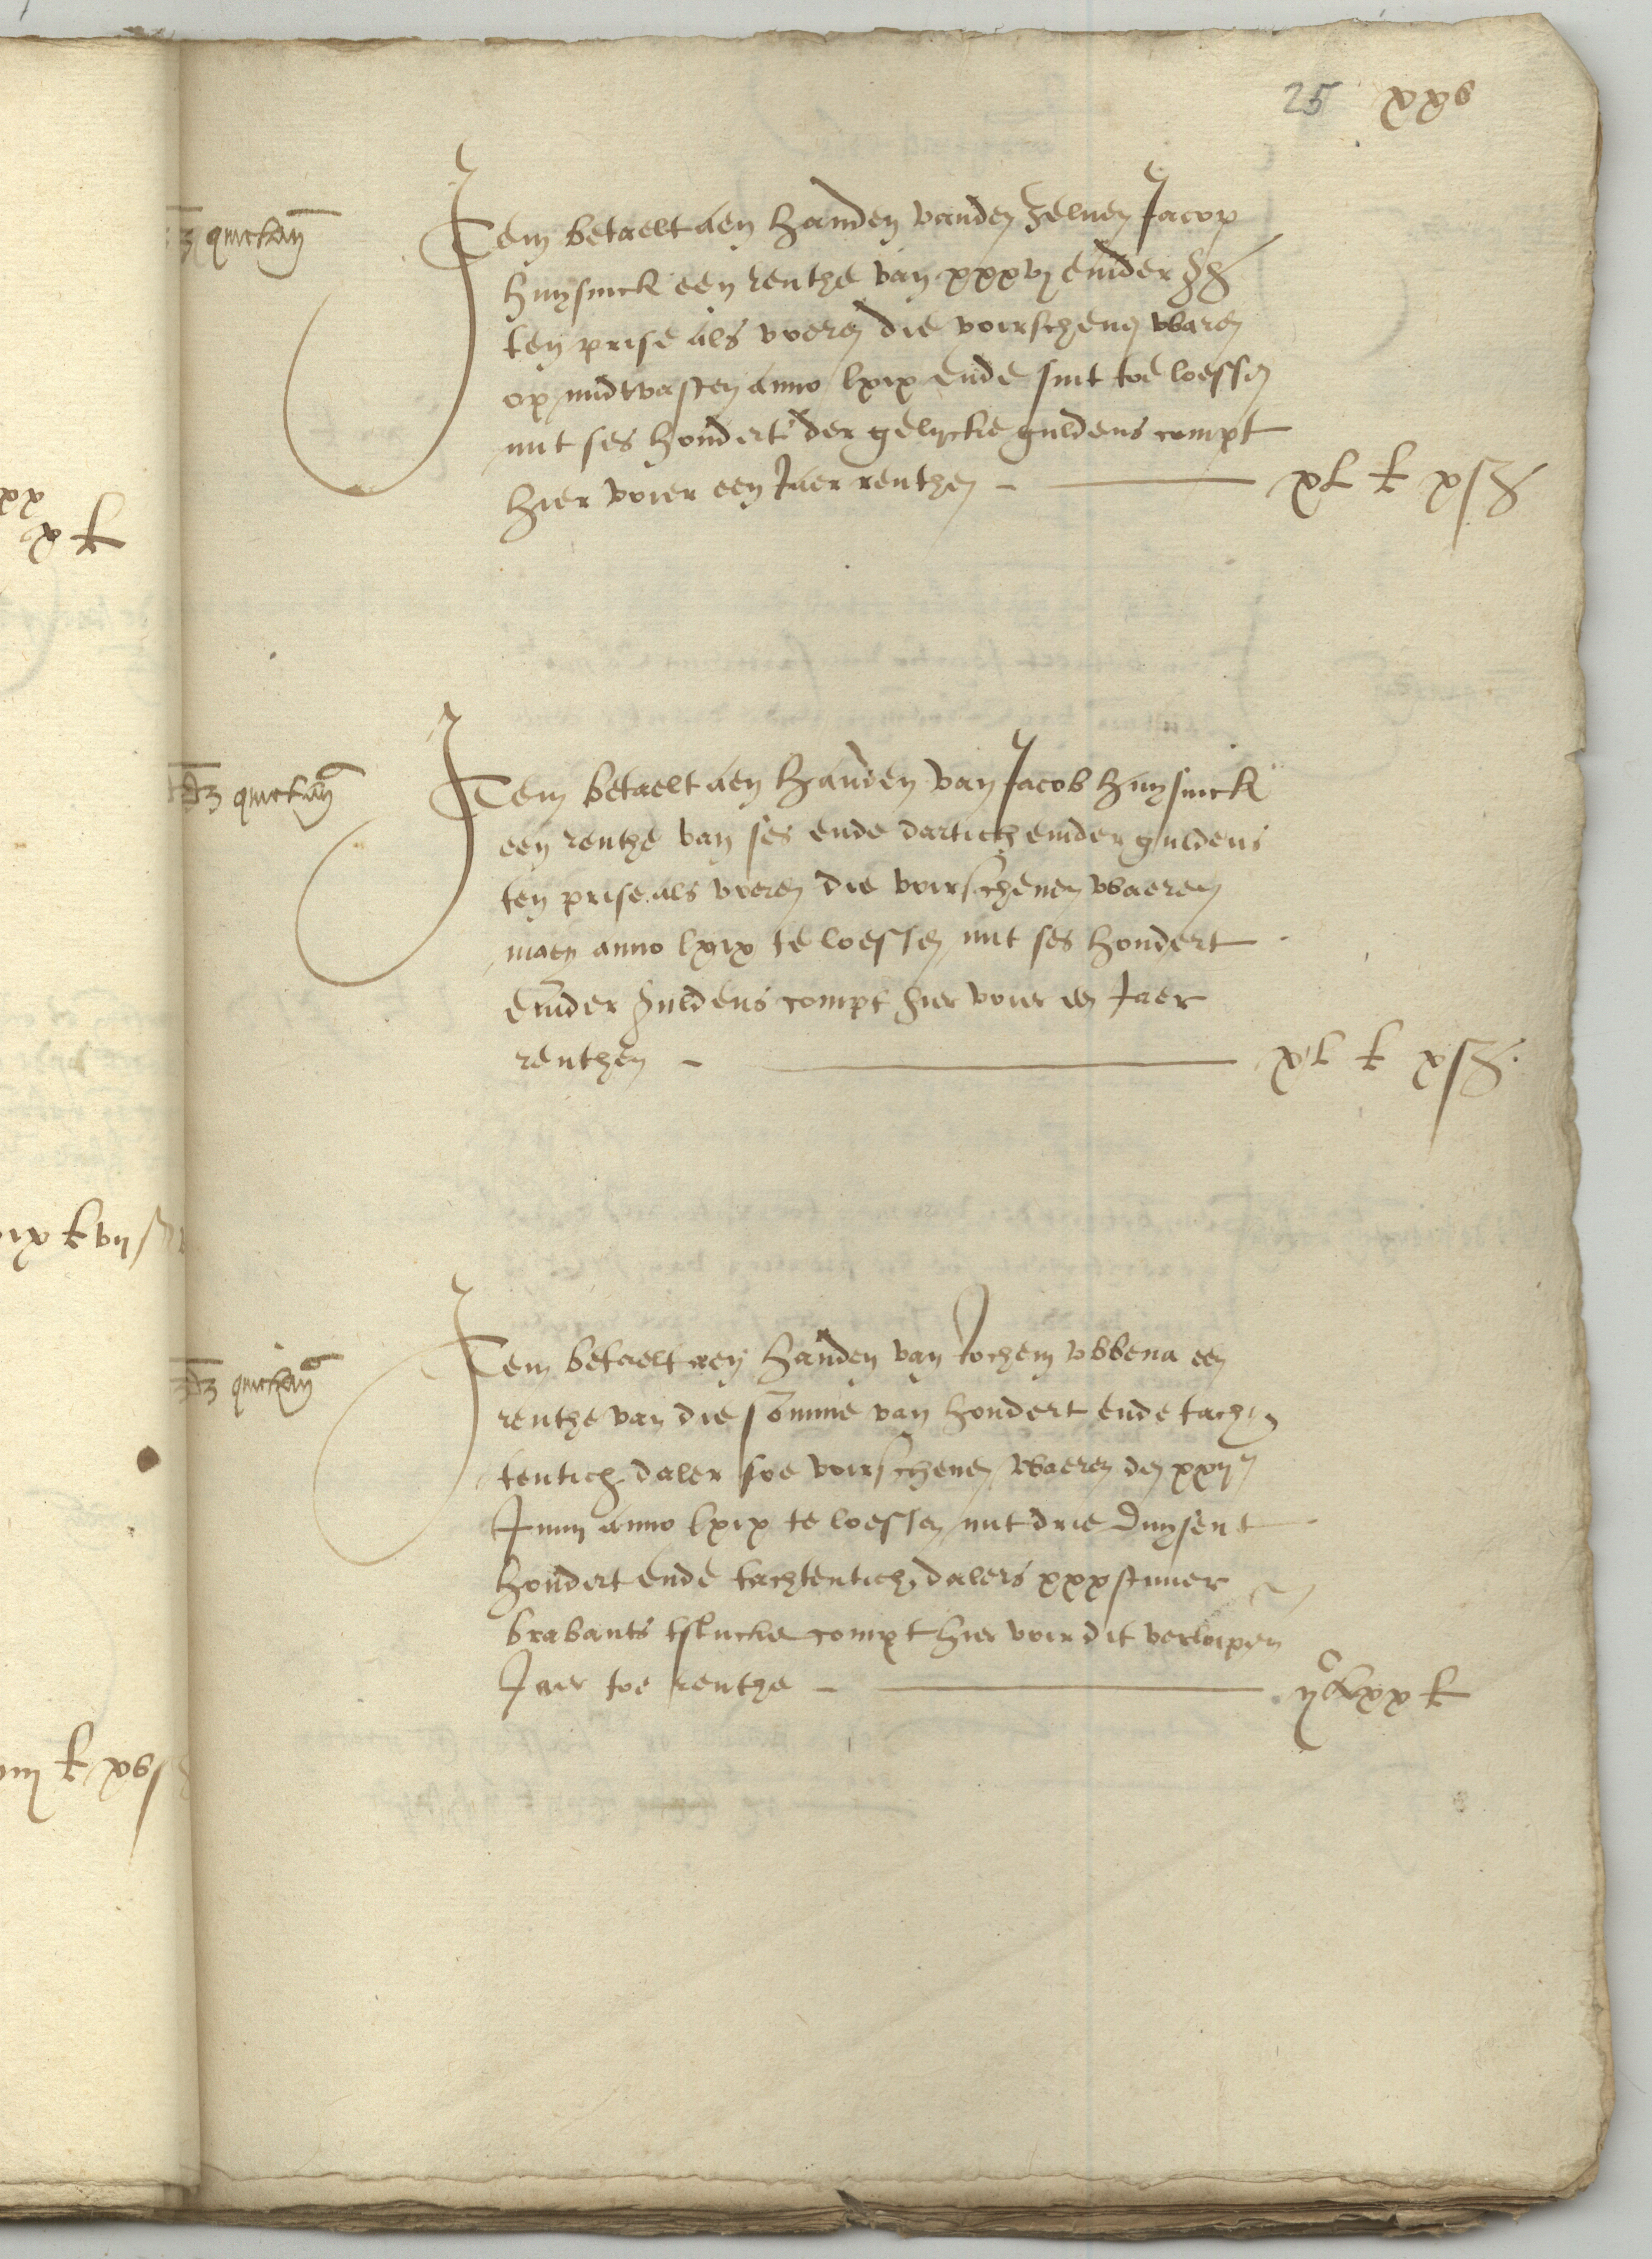 25 xxv
quictan͠
Item betaelt aen handen vanden zeluen Jacop
huysinck een renthe van xxxvj emder gg
ten prise als voeren die voirschenen waren
op midtvasten anno lxix ende sint toe loessen
mit ses hondert der gelycke guldens compt
hier voier een Jaer renthen - xl k x ß
quictan͠
Item betaelt aen handen van Jacob huysinck
een renthe van ses ende dartich emder guldens
ten prise als voeren die voirschenen waeren
maey anno lxix te loessen mit ses hondert
emder guldens compt hier voier een Jaer
renthen - xl k x ß
quictan͠
Item betaelt aen handen van Jochem vbbena een
renthe van die somme van hondert ende tach
tentich daler soe voirschenen waeren den xxij
Junij anno lxix te loessen mit drie duysent
hondert ende tachtentich dalers xxx stuuer
brabants tstucke compt hier voir dit verloipen
Jaer toe renthe - ijc lxx k